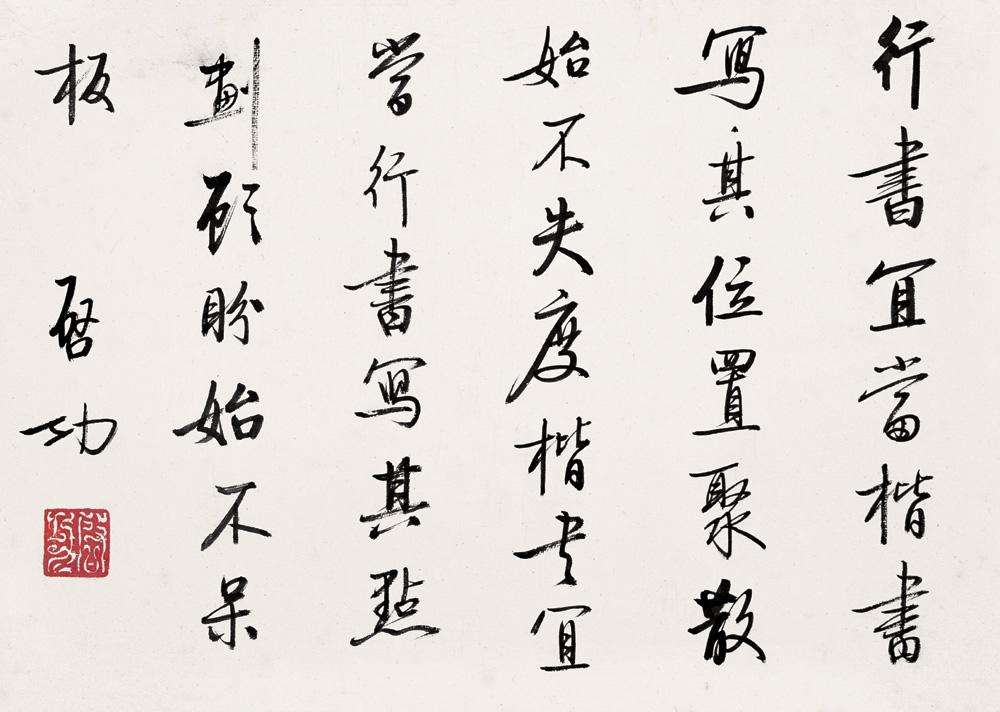 行書宜當楷書
寫其位置聚散
始不失度楷书宜
當行書寫其點
劃顧盼始不呆
板
啓功